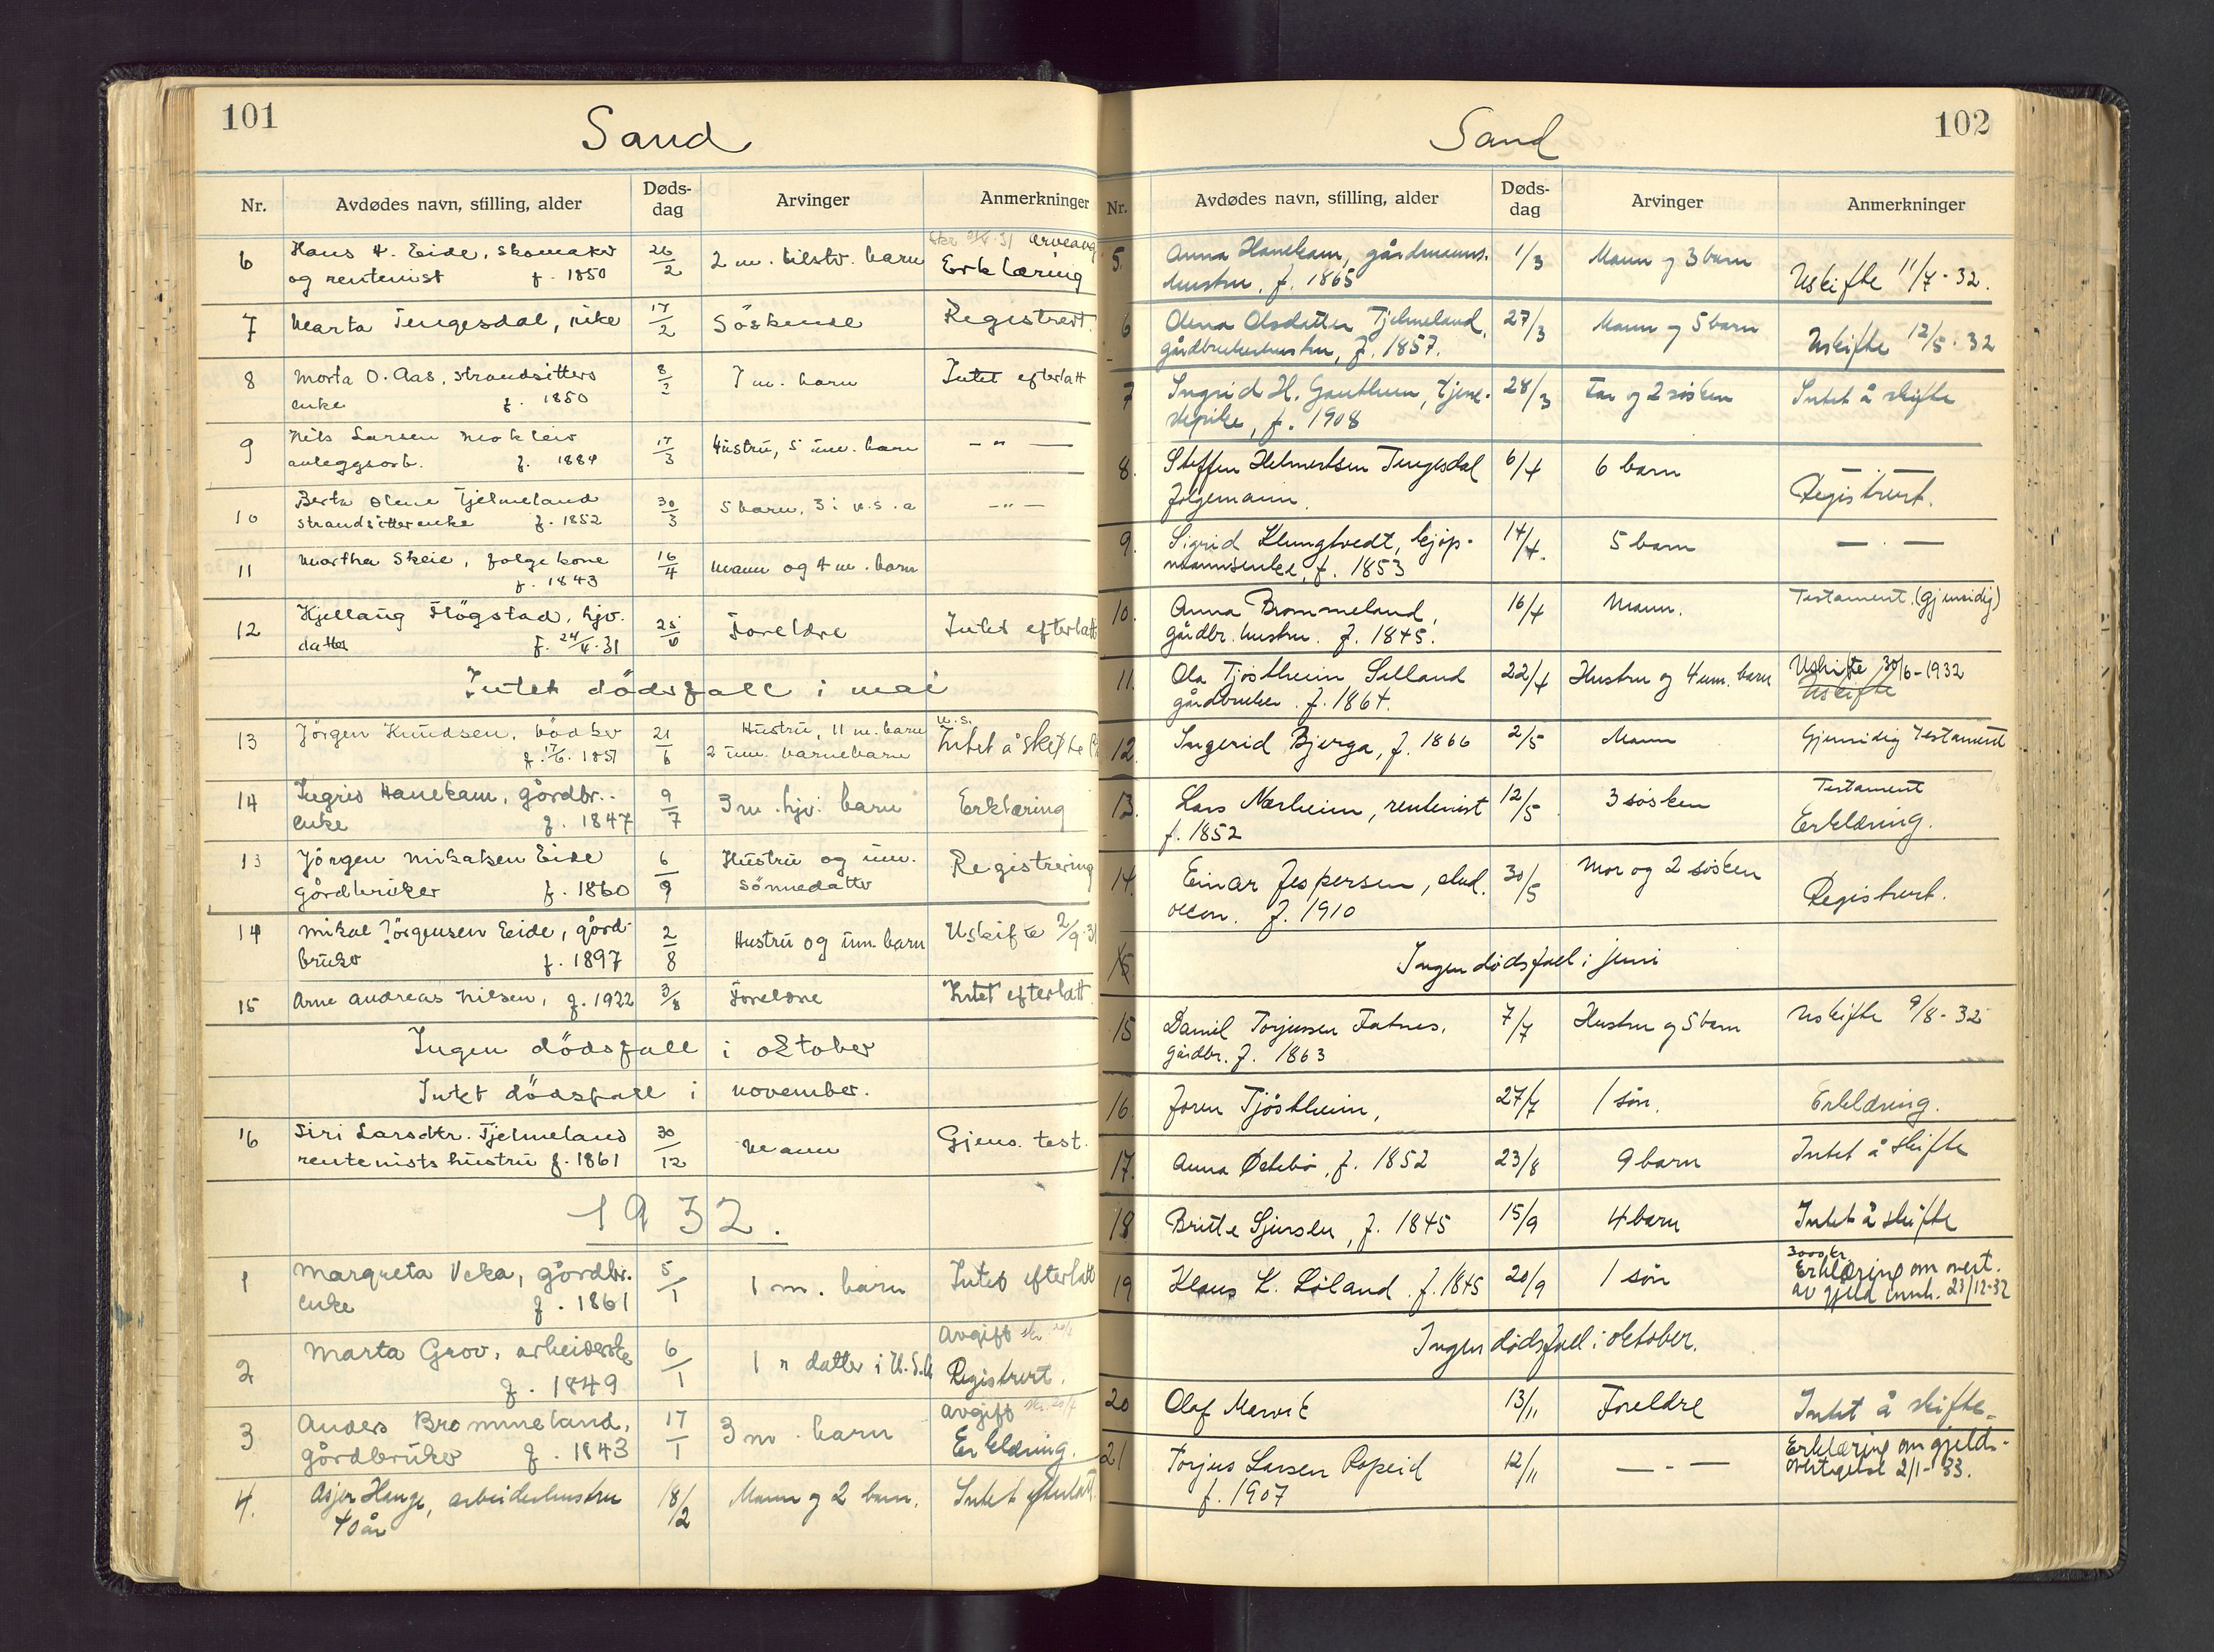 101
Sand
Nr. Avdødes navn, stilling, alder Døds-dag Arvinger Anmerkninger
arveavg
6 Hans H. Eide, skomaker 26/2 2 m. tilstv. barn Erklæring
og rentenist f. 1850
7 Marta Tengesdal, pike 17/2 Söskende Registrert.
8 Marta O. Aas, strandsitters 8/2 7 m. barn Intet efterlatt
enke f. 1850
9 Nils Larsen Mokleiv 17/3 Hustru, 5 um. barn — " —
anleggsarb. f. 1884
10 Berta Olene Tjelmeland 30/3 5 barn, 3 i U.S.A — " —
strandsitterenke f. 1852
11 Martha Skeie, folgekone 16/4 Mann og 4 m. barn
f. 1843
12 Kjellaug Flögstad, hjv. 25/6 Foreldre Intet efterlatt
datter f. 24/4.31
Intet dödsfall i mai
13 Jörgen Knudsen, bödker 21/6 Hustru, 11 m. barn u.s. Intet å skifte
f. 17/6. 1851 2 um. barnebarn
14 Ingrid Hanekam, gårdbr.- 9/7 3 m. hjv. barn Erklæring
enke f. 1847
13 Jörgen Mikalsen Eide 6/9 Hustru og um. Registrering
gårdbruker f. 1860 sönnedatter
14 Mikal Jörgensen Eide, gård- 2/8 Hustru og um. barn Uskifte 2/9.31
bruker f. 1897
15 Arne Andreas Nilsen, f. 1922 3/8 Foreldre Intet efterlatt
Ingen dödsfall i oktober
Intet dödsfall i november.
16 Siri Larsdtr. Tjelmeland 30/12 Mann Gjens. test.
rentenists hustru f. 1861
1932.
1 Margreta Veka, gårdbr. 5/1 1 m. barn Intet efterlatt
enke f. 1861
2 Marta Grov, arbeiderske 6/1 1 m datter i U.S.A Avgift
f. 1849 Registrert.
3 Anders Brommeland, 17/1 3 m. barn avgift
gårdbruker f. 1843 Erklæring.
4. Asjer Hauge, arbeiderhustru 18/2 Mann og 2 barn. Intet efterlatt
40 år
102
Sand
Nr. Avdødes navn, stilling, alder Døds-dag Arvinger Anmerkninger
5. Anna Hanekam, gårdmanns- 1/3 Mann og 3 barn Uskifte 11/7-32.
hustru, f. 1865
6 Olena Olsdatter Tjelmeland, 27/3 Mann og 5 barn Uskifte 12/5.32
gårdbrukerhustru, f. 1857.
7 Ingrid H. Gauthun, tjene- 28/3 Far og 2 søsken Intet å skifte
stepike, f. 1908
8. Steffen Helmertsen Tengesdal 6/4 6 barn Registrert.
folgemann.
9. Sigrid Klungtvedt, kjøp- 14/4. 5 barn — . —
mannsenke, f. 1853
10. Anna Brommeland, 16/4 Mann. Testament. (gjensidig)
gårdbr. hustru. f. 1845.
11. Ola Tjøstheim Selland 22/4 Hustru og 4 um. barn Uskifte 30/6-1932
gårdbruker. f. 1864. Uskifte
12. Ingerid Bjerga, f. 1866 2/5 Mann Gjensidig Testament
13. Lars Nærheim, rentenist 12/5 3 søsken Testament
f. 1852 Erklæring.
14. Einar Jespersen, stud. 30/5 Mor og 2 søsken Registrert.
oecon. f. 1910
15 Ingen dødsfall i juni
15 Daniel Torjussen Fatnes, 7/7 Hustru og 5 barn Uskifte 9/8-32
gårdbr. f. 1863
16. Joren Tjøstheim, 27/7 1 søn. Erklæring.
17. Anna Østebø, f. 1852 23/8 9 barn Intet å skifte
18 Britte Gjersler, f. 1845 15/9 4 barn Intet å skifte
3000 kr
19 Klaus K. Løland. f. 1845 20/9 1 søn Erklæring om overt.
av gjeld innh. 23/12-32
Ingen dødsfall i oktober.
20 Olaf Mærvik 13/11 Foreldre Intet å skifte
21 Torjus Larsen Ropeid 12/11 — - — Erklæring om gjelds-
f. 1907 overtagelse 2/1-33.